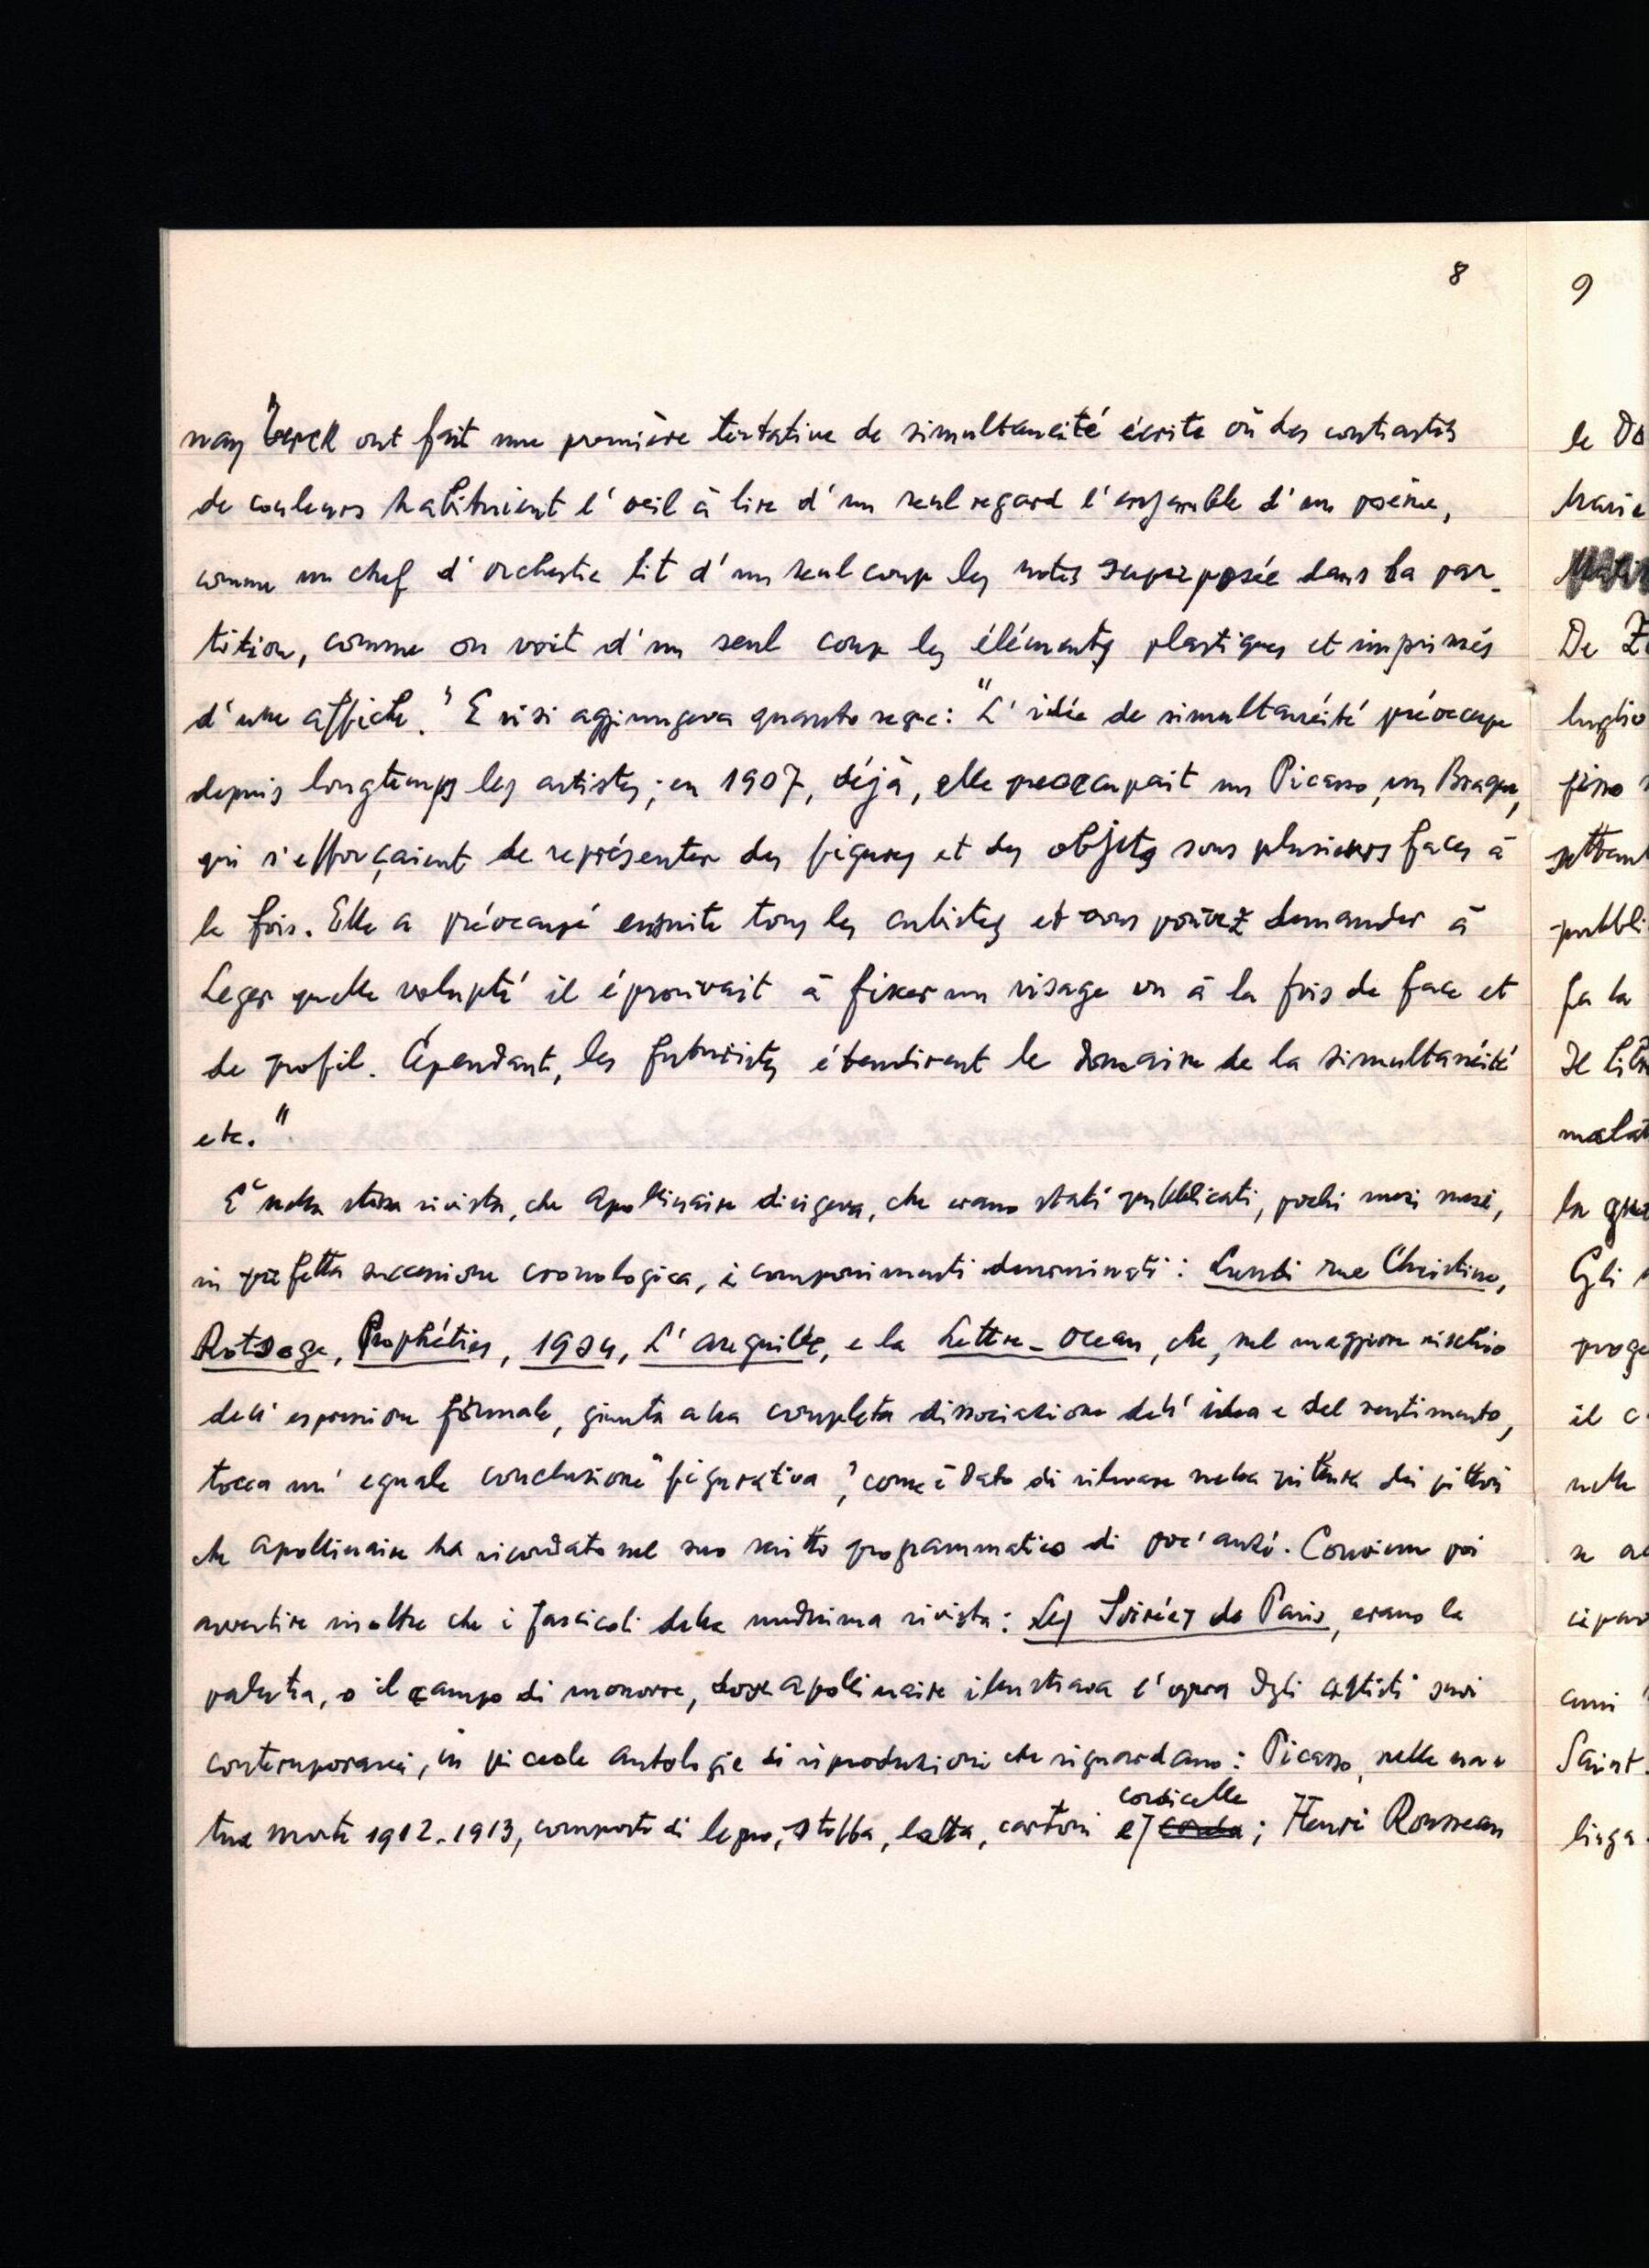 8
nay Terck ont fait une première tentative de simultaneité écrite où des contrastes
de couleurs habituaient l'oeil à lire d'un seul regard l'ensemble d'un poème,
comme un chef d'orchestre lit d'un seul coup les notes superposée dans la par-
tition, comme on voit d'un seul coup les éléments plastiques et imprimés
d'une affiche." E vi si aggiungeva quanto segue: "L'idée de simultanéité préoccupe
depuis longtemps les artistes; en 1907, déjà, elle preoccupait un Picasso, un Braque,
qui s'efforçaient de représenter des figures et des objets sous plusieurs faces à
la fois. Elle a préoccupé ensuite tous les cubistes et vous pouvez demander à
Leger quelle volupté il éprouvait à fixer un visage vu à la fois de face et
de profil. Cépendant, les futuristes étendirent le domaine de la simultanéité
etc."
E' nella stessa rivista, che Apollinaire dirigeva, che erano stati pubblicati, pochi mesi
in perfetta successione cronologica, i componimenti denominati: Lundi rue Christine,
Rotsoge, Prophéties, 1904, L'aneguille, e la Lettre-Ocean, che, nel maggiore rischio
dell'espressione formale, giunta alla completa dissociazione dell'idea e del sentimento,
tocca un'eguale conclusione "figurativa", come è dato di rilevare nella pittura dei pittori
che Apollinaire ha ricordato nel suo scritto programmatico di poc'anzi. Conviene poi
avvertire inoltre che i fascicoli della medesima rivista: Les Soirées de Paris, erano la
palestra, o il campo di manovre, dove Apollinaire illustrava l'opera degli artisti suoi
contemporanei, in piccole antologie di riproduzioni che riguardano: Picasso, nelle na-
cordicelle
ture morte 1912-1913, composte di legno, stoffa, latta, cartoni e corda; Henri Rousseau
9
le
Marie
De
luglio
fisso
settem
pubbli
fa la
Il lib
malat
la
Gli
proge
il c
nelle
se
Saint